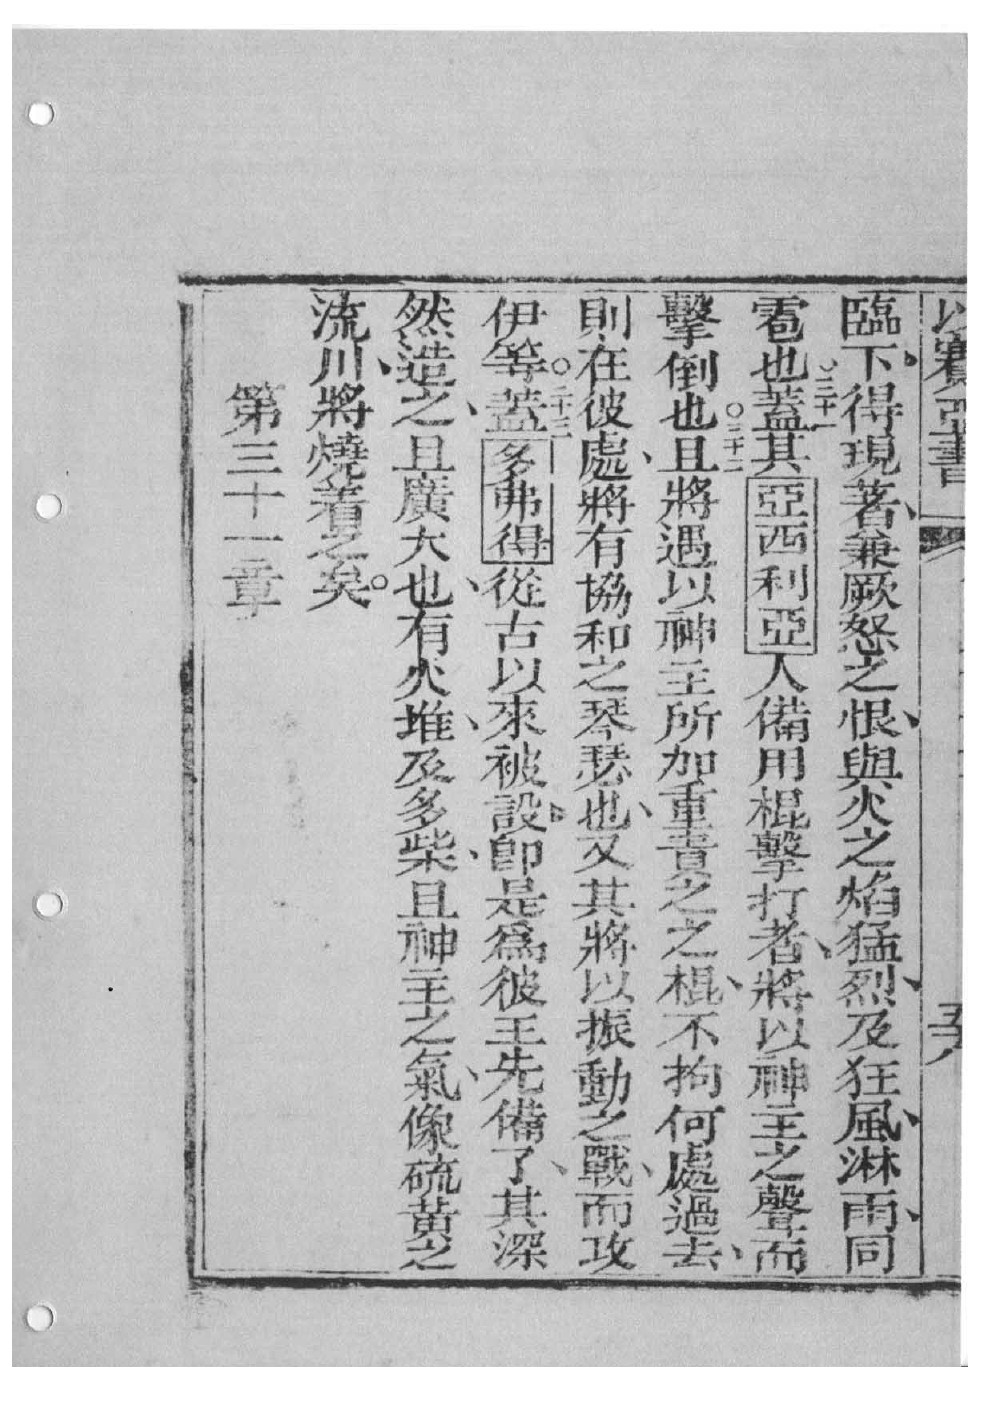 以賽亞書
臨下得現著、兼厥怒之恨、與火之焰猛烈、及狂風、淋雨、同
雹也。三十一蓋其亞西利亞人備用棍擊打者、將以神主之聲而
擊倒也。三十二且將遇以神主所加重責之之棍、不拘何處過去、
則在彼處、將有協和之琴瑟也、又其將以振動之戰、而攻
伊等。三十三蓋多弗得從古以來被設、卽是爲彼王先備了、其深
然造之、且廣大也、有火堆、及多柴、且神主之氣、像硫黃之
流川、將燒着之矣。
第三十一章